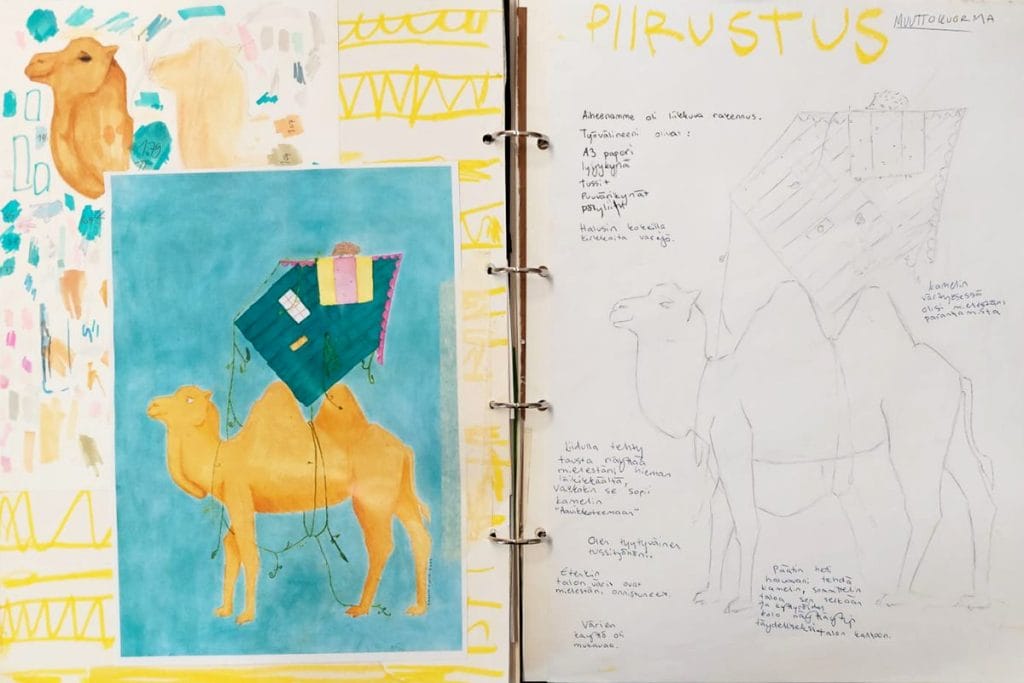 PIIRUSTUS
MUUTTOKUORMA
Aiheenamme oli liikkuva rakennus.
Työvälineeni olivat:
A3 paperi
lyijykynä
tussit
Puuvärikynät
pölyliidut
Halusin kokeilla
kirkkaita värejä.
kamelin
värityksessä
olisi mielestäni
parantamista
Liidulla tehty
tausta näyttää
mielestäni hieman
läikikkäältä,
vaikkakin se sopii
kamelin
"Aavikkoteemaan"
Olen tyytyväinen
tussityöhöni.
Etenkin
talon värit ovat
mielestäni onnistuneet.
Värien
käyttö oli
mukavaa.
Päätin heti
haluavani tehdä
kamelin, sommittelin
taloa sen selkään
ja kyttyröiden
kolo näyttäytyi
täydelliseksi talon kantoon.
179